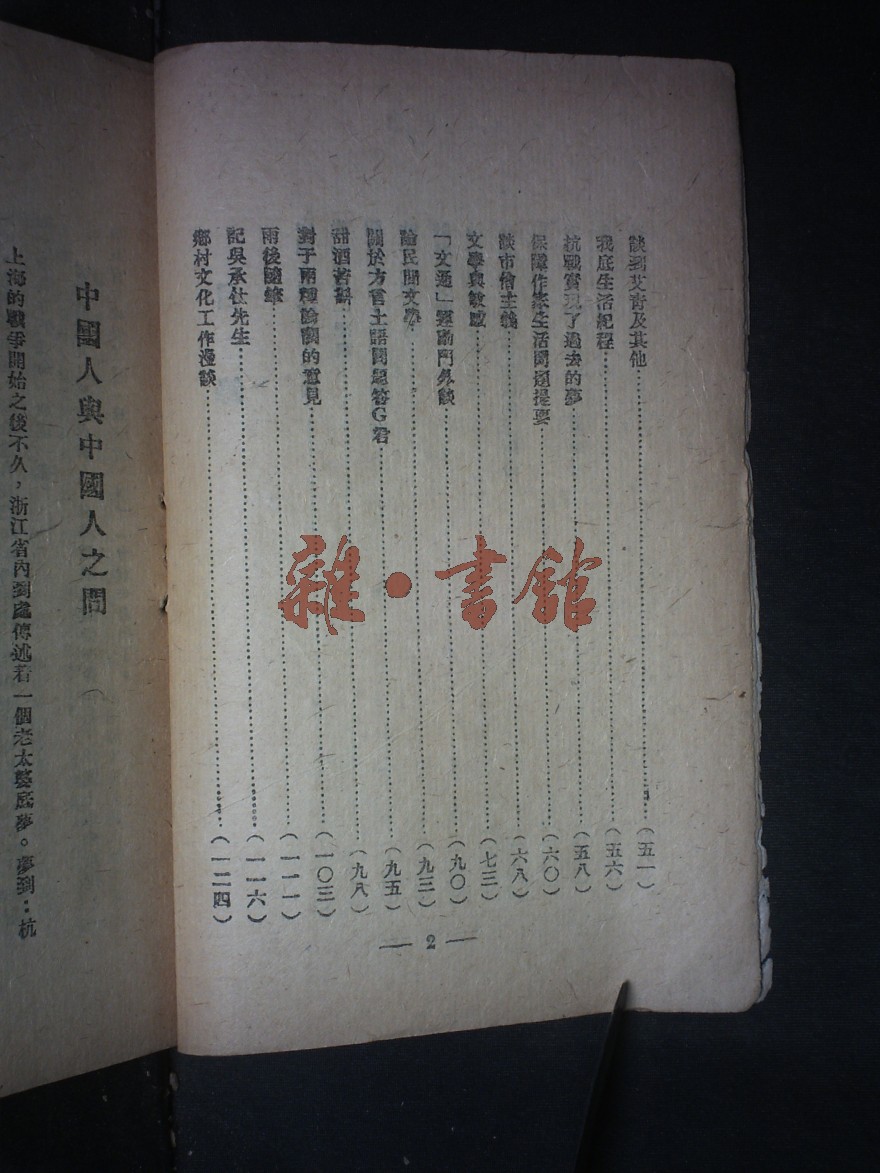 談到艾青及其他(五一)
我底生活紀程(五六)
抗戰實現了過去的夢(五八)
保障作家生活問題提要(六〇)
談市儈主義(六八)
文學與敏感(七三)
「文通」運動門外談(九〇)
論民間文學(九三)
關於方言土語問題答G君(九五)
甜酒苦(九八)
對于兩種論調的意見(一〇三)
雨後隨筆(一一一)
記吳承仕先生(一一六)
鄉村文化工作漫談(一二四)
— 2 —
中國人與中國人之間
(一
上海的戰爭開始之後不久,浙江省內到處傳述着一個老太婆底夢。夢到:杭
雜·書館